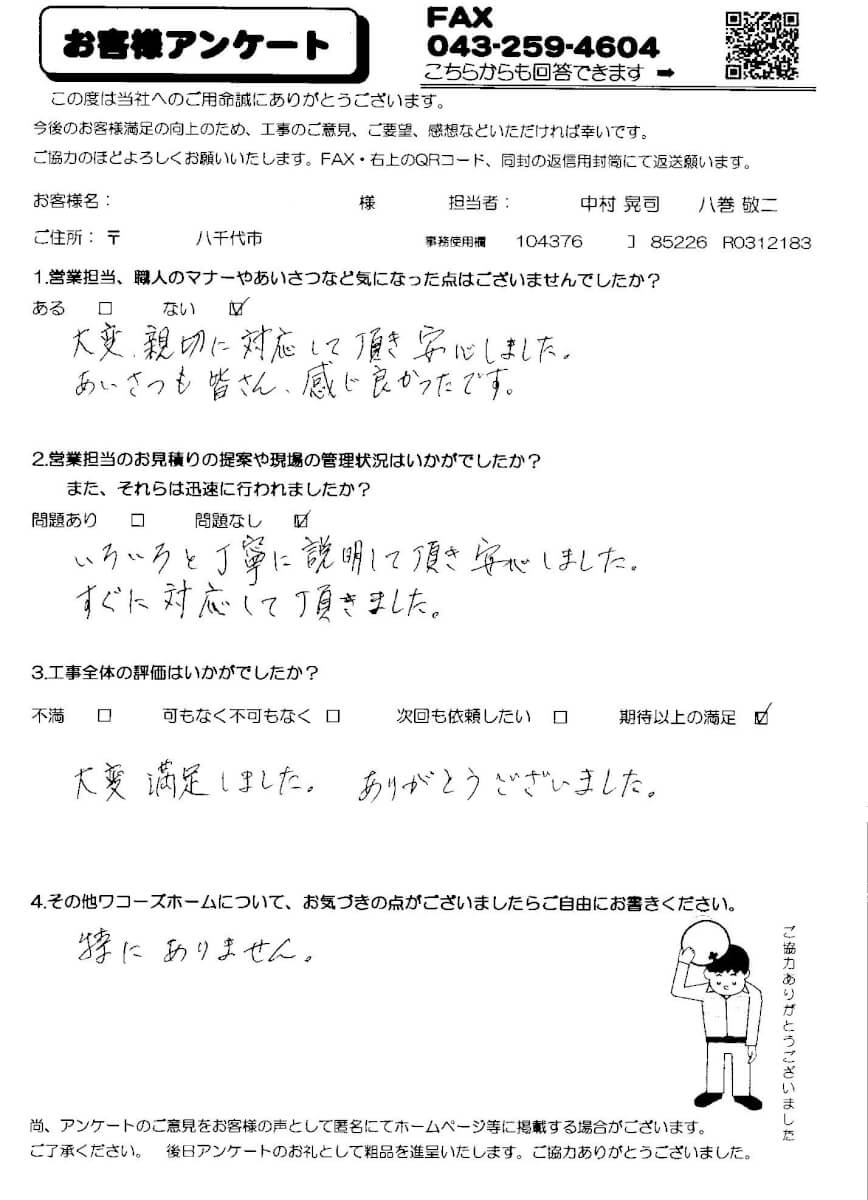 お客様アンケート
FAX
043-259-4604
こちらからも回答できます ➡
この度は当社へのご用命誠にありがとうございます。
今後のお客様満足の向上のため、工事のご意見、ご要望、感想などいただければ幸いです。
ご協力のほどよろしくお願いいたします。FAX・右上のQRコード、同封の返信用封筒にて返送願います。
お客様名： 様 担当者： 中村 晃司 八巻 敬二
ご住所：〒 八千代市 事務使用欄 104376 ] 85226 R0312183
1.営業担当、職人のマナーやあいさつなど気になった点はございませんでしたか？
ある □ ない ☑
大変、親切に対応して頂き安心しました。
あいさつも皆さん、感じ良かったです。
2.営業担当のお見積りの提案や現場の管理状況はいかがでしたか？
また、それらは迅速に行われましたか？
問題あり □ 問題なし ☑
いろいろと丁寧に説明して頂き安心しました。
すぐに対応して頂きました。
3.工事全体の評価はいかがでしたか？
不満 □ 可もなく不可もなく □ 次回も依頼したい □ 期待以上の満足 ☑
大変満足しました。 ありがとうございました。
4.その他ワコーズホームについて、お気づきの点がございましたらご自由にお書きください。
特にありません。
ご協力ありがとうございました
尚、アンケートのご意見をお客様の声として匿名にてホームページ等に掲載する場合がございます。
ご了承ください。 後日アンケートのお礼として粗品を進呈いたします。ご協力ありがとうございました。